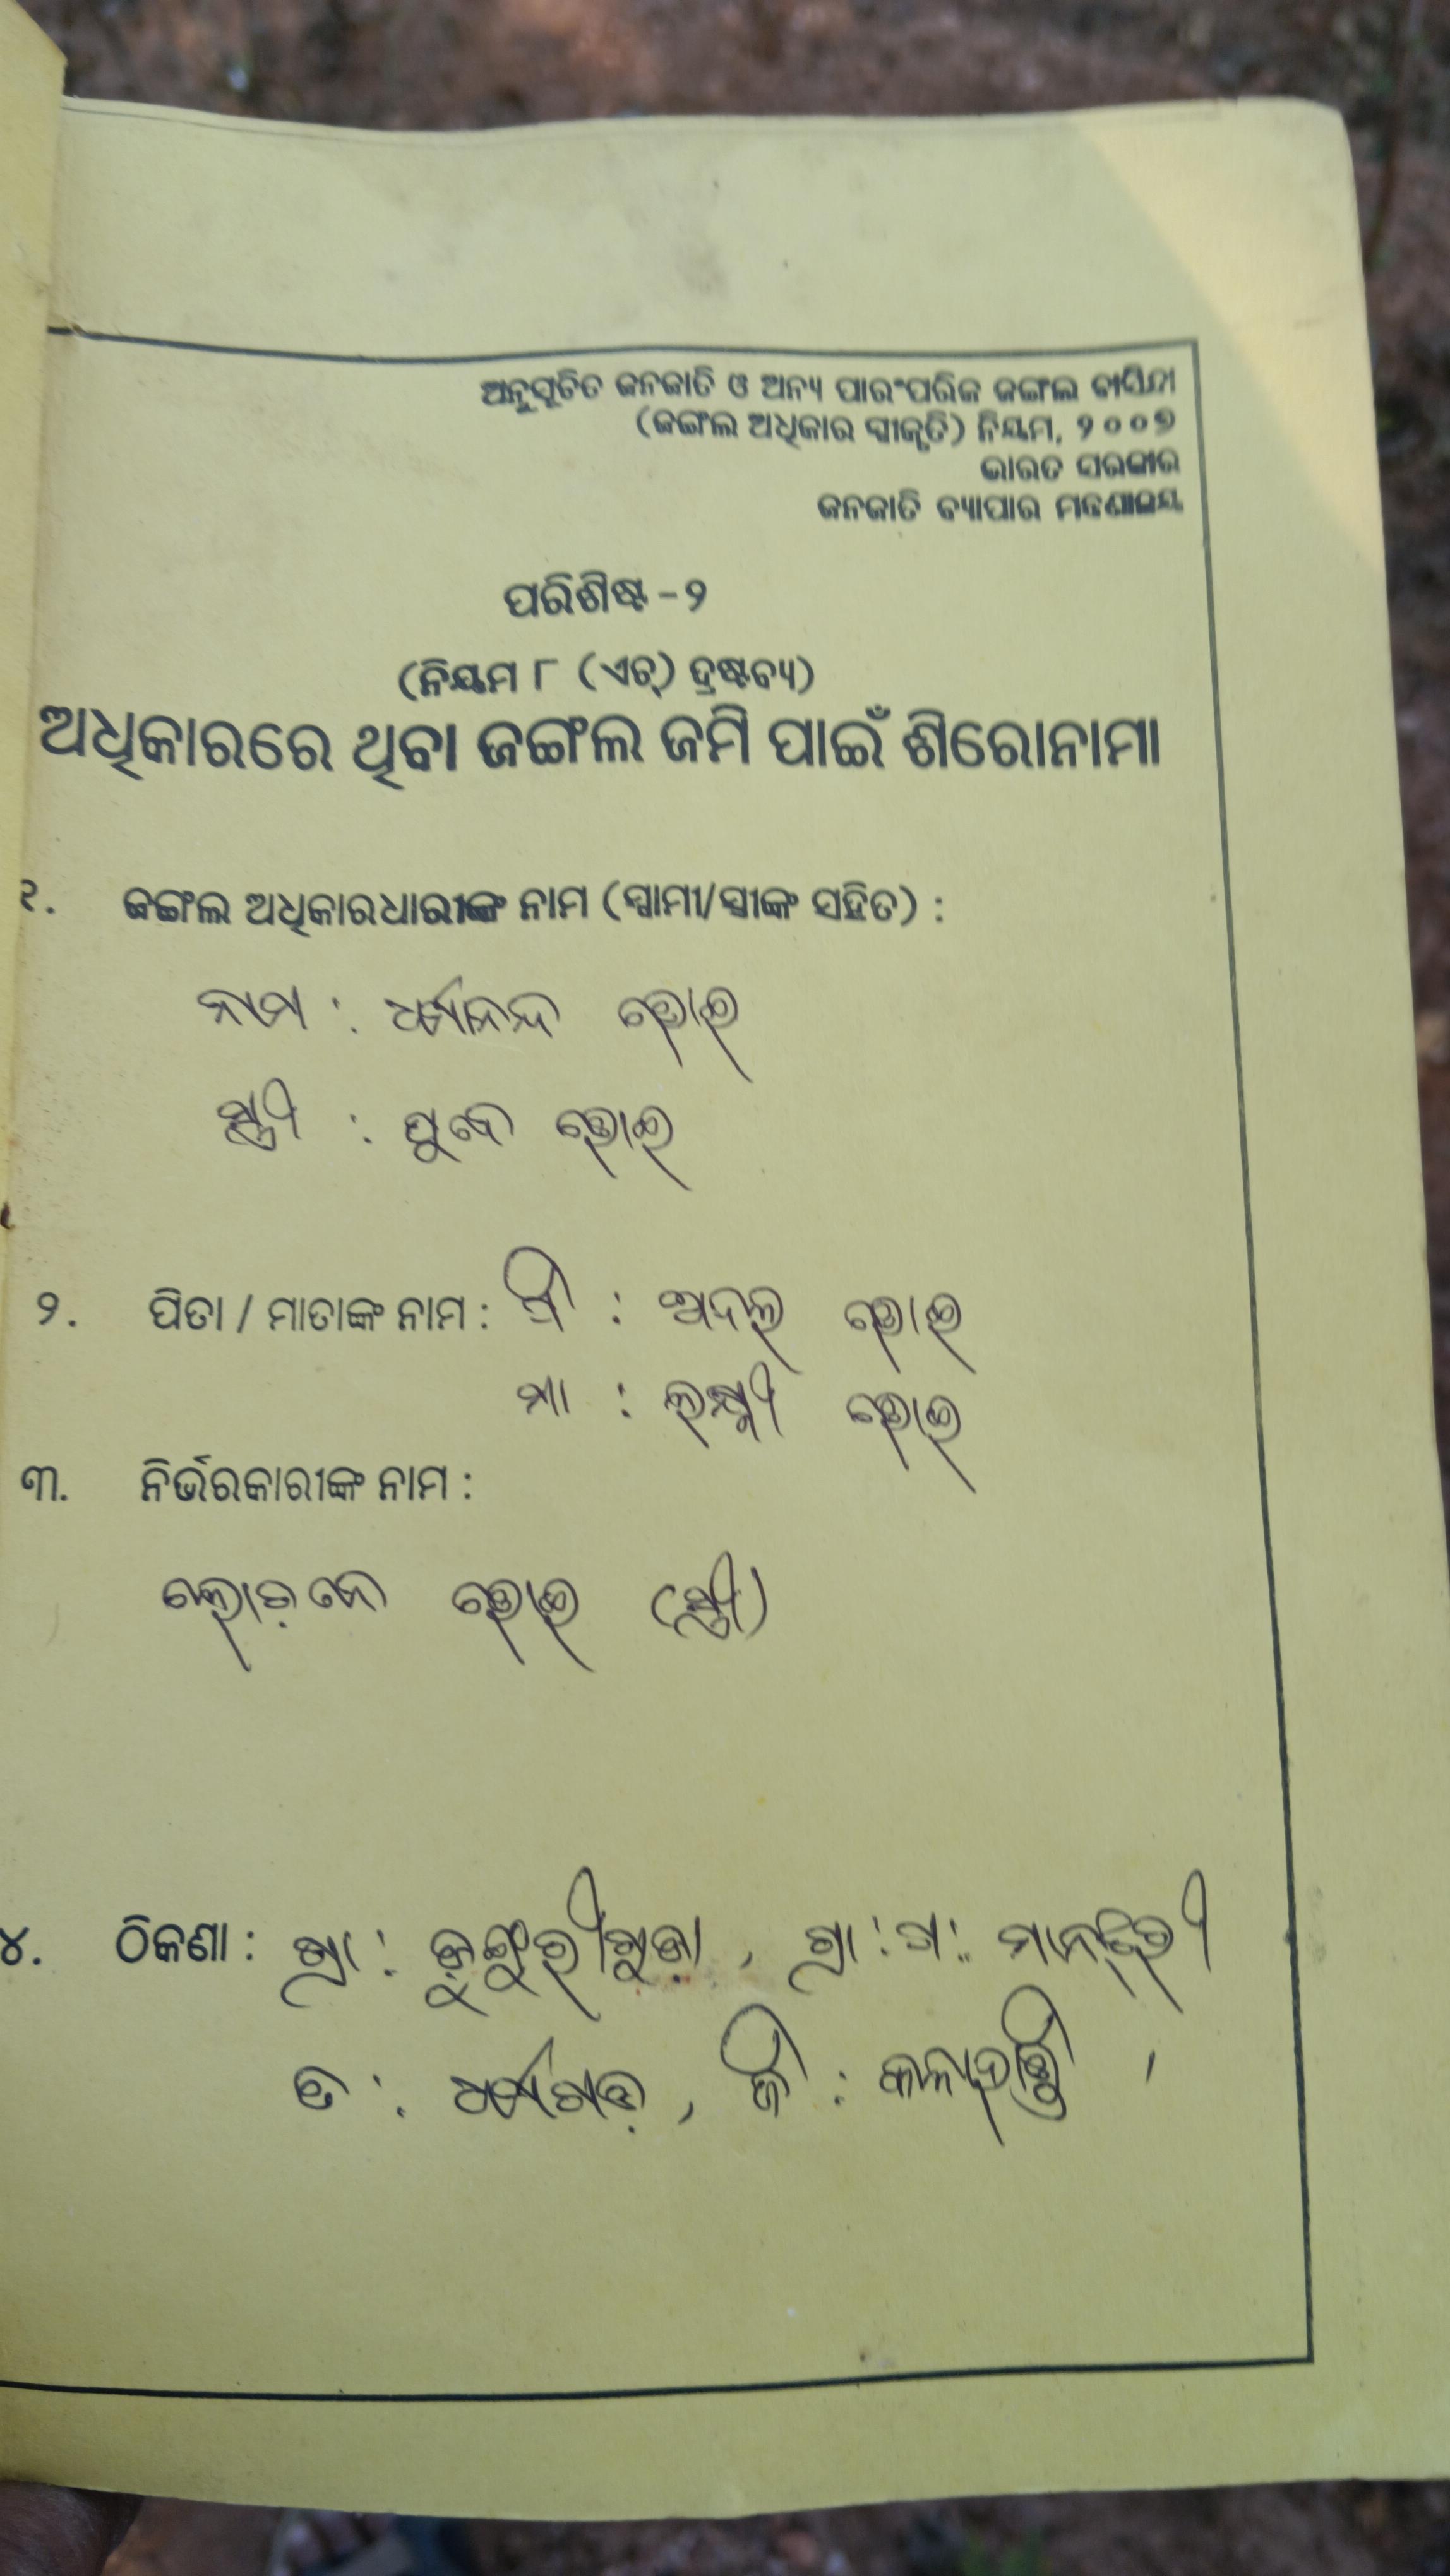 ଅନୁସୂଚିତ ଜନଜାତି ଓ ଅନ୍ୟ ପାରଂପରିକ ଜଙ୍ଗଲ ବାସିନ୍ଦା
(ଜଙ୍ଗଲ ଅଧିକାର ସ୍ୱୀକୃତି) ନିୟମ, ୨୦୦୭
ଭାରତ ସରକାର
ଜନଜାତି ବ୍ୟାପାର ମନ୍ତ୍ରଣାଳୟ
ପରିଶିଷ୍ଟ - ୨
(ନିୟମ ୮ (ଏଚ୍) ଦ୍ରଷ୍ଟବ୍ୟ)
ଅଧିକାରରେ ଥିବା ଜଙ୍ଗଲ ଜମି ପାଇଁ ଶିରୋନାମା
୧. ଜଙ୍ଗଲ ଅଧିକାରଧାରୀଙ୍କ ନାମ (ସ୍ୱାମୀ/ସ୍ତ୍ରୀଙ୍କ ସହିତ) :
ନାମ : ଧର୍ମାନନ୍ଦ ଭୋଇ
ସ୍ତ୍ରୀ : ଭୋଇ
୨. ପିତା / ମାତାଙ୍କ ନାମ : ପି : ଅଦଲ ଭୋଇ
ମା : ଲକ୍ଷ୍ମୀ ଭୋଇ
୩. ନିର୍ଭରକାରୀଙ୍କ ନାମ :
ଭୋଇ (ସ୍ତ୍ରୀ)
୪. ଠିକଣା : ଗ୍ରା : ଡୁଙ୍ଗୁରୀଗୁଡା, ଗ୍ରା : ପ :
ତ : ଧର୍ମଗଡ଼, ଜି : କଳାହାଣ୍ଡି,